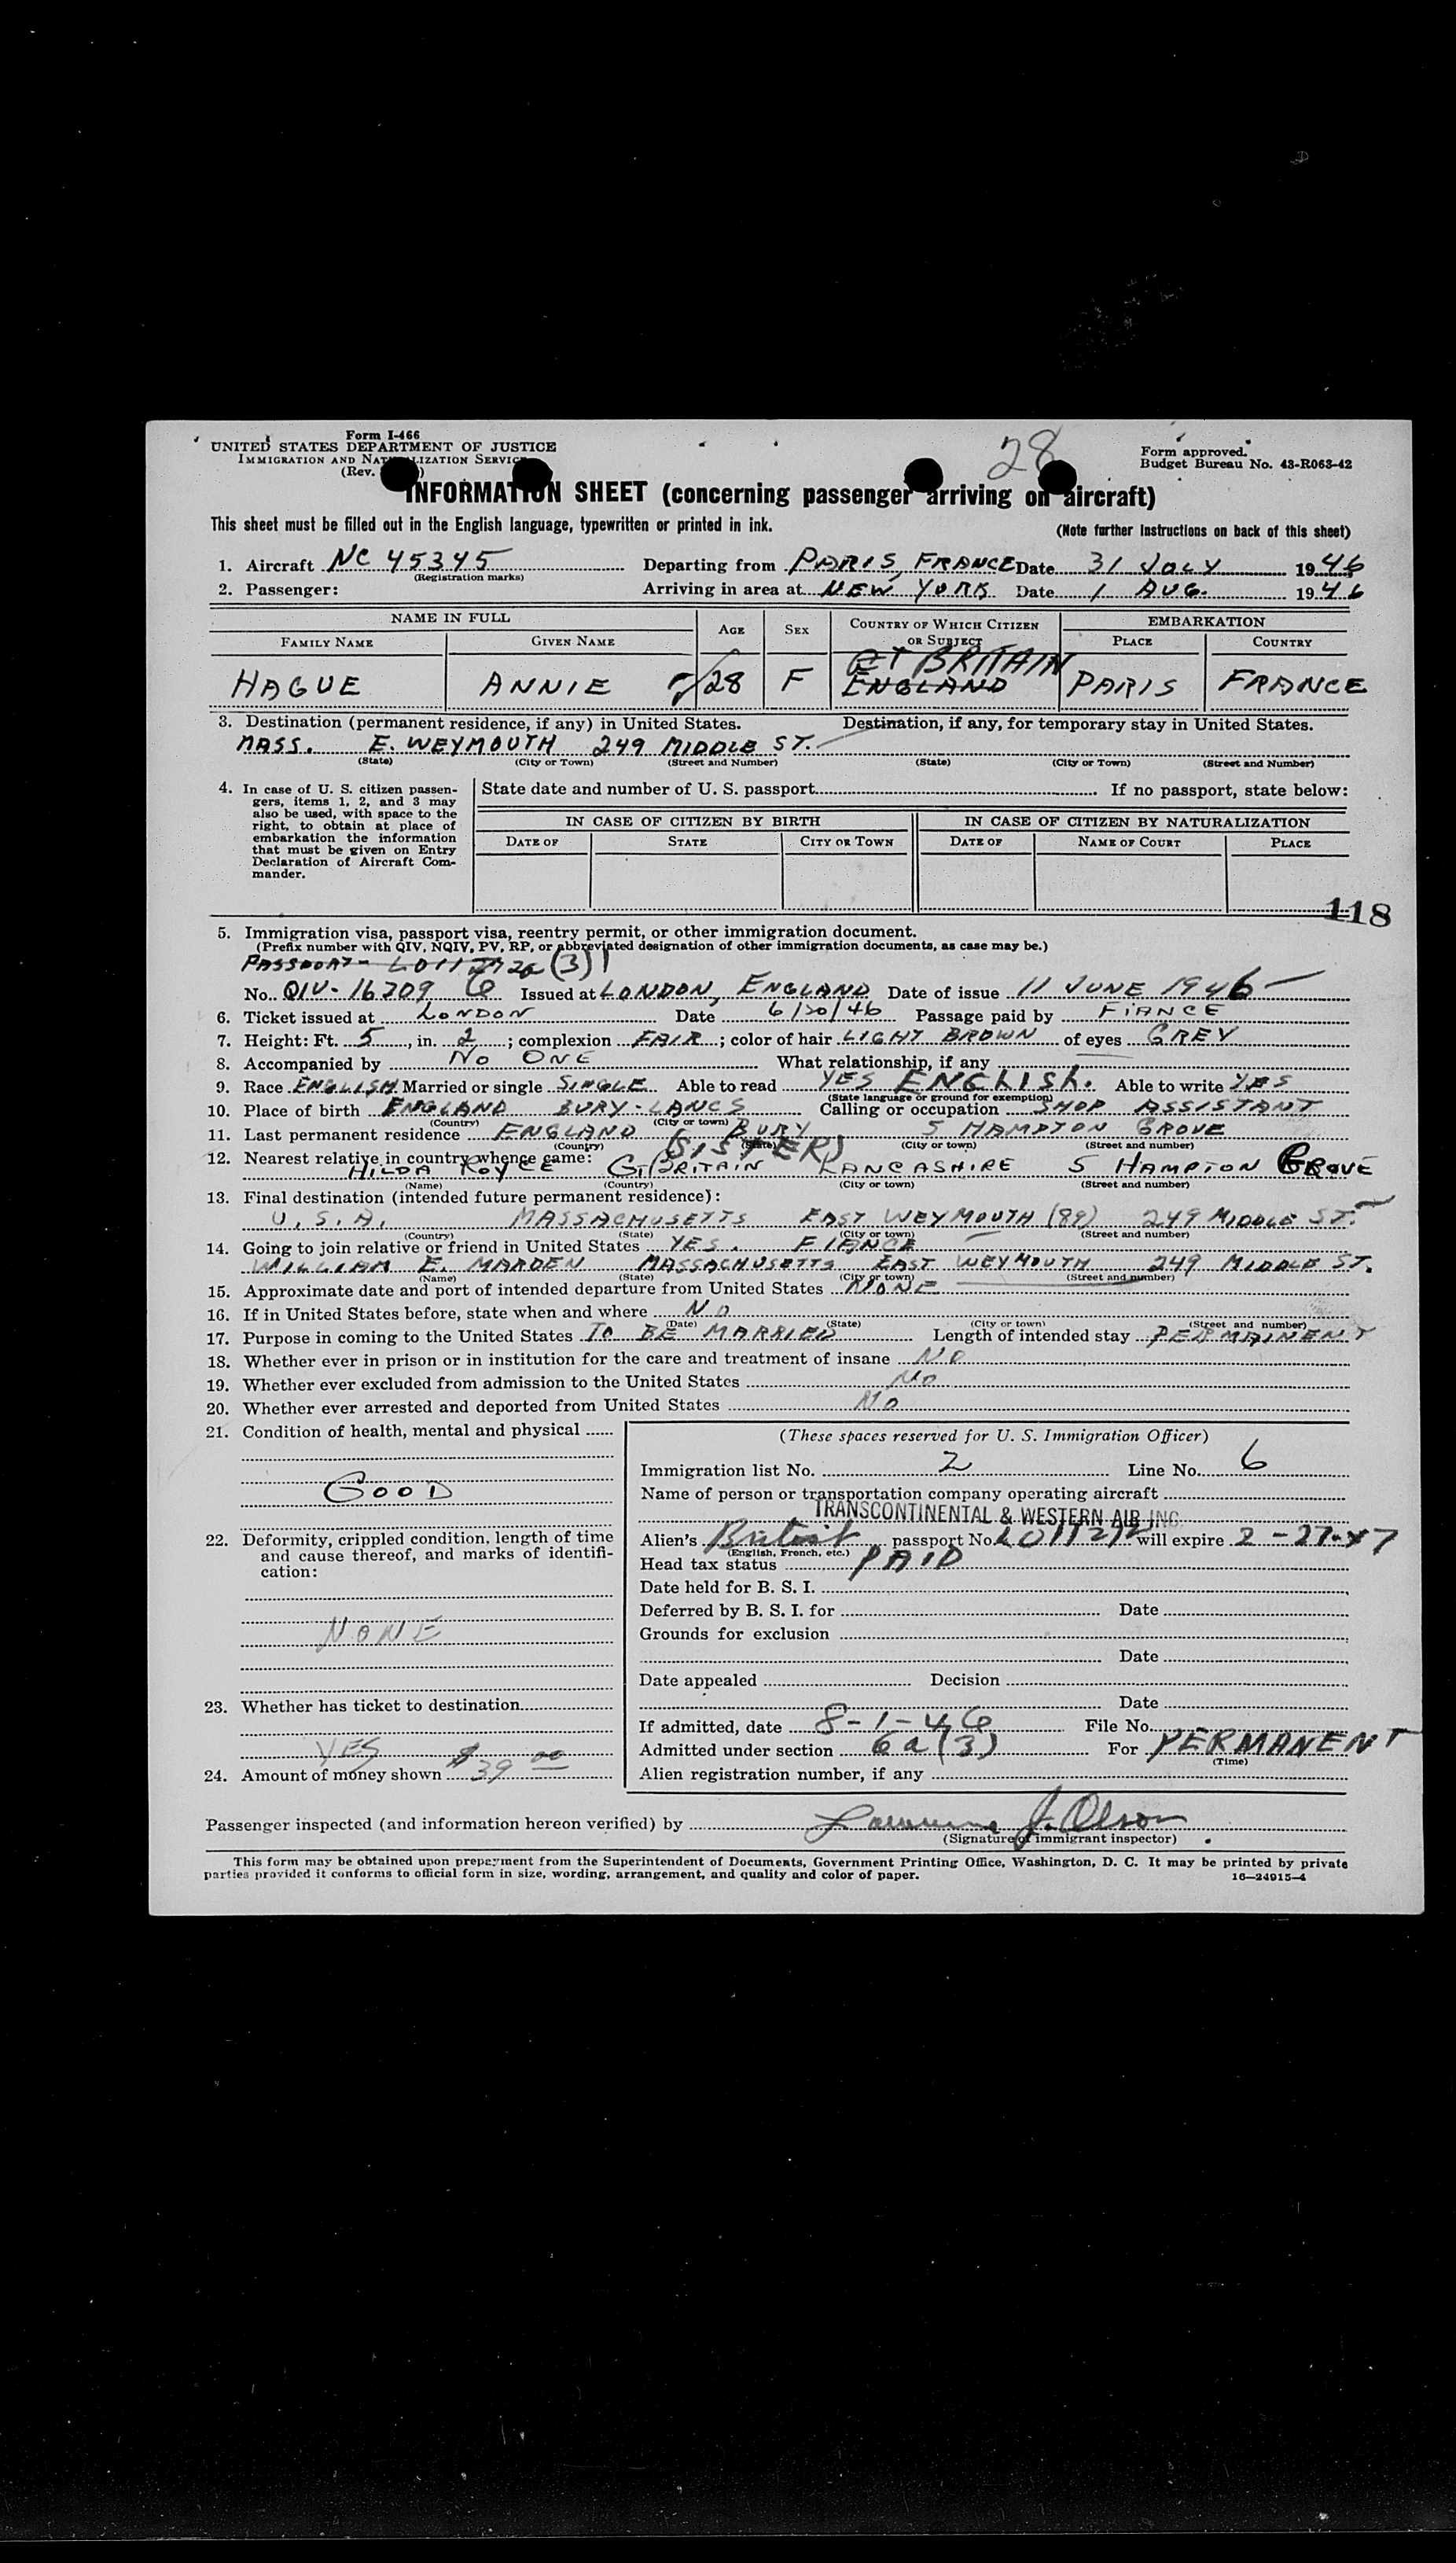 Form I-466
UNITED STATES DEPARTMENT OF JUSTICE
IMMIGRATION AND NATURALIZATION SERVICE
(Rev. )
28
Form approved.
Budget Bureau No. 43-R063-42
INFORMATION SHEET (concerning passenger arriving on aircraft)
This sheet must be filled out in the English language, typewritten or printed in ink.
(Note further instructions on back of this sheet)
1. Aircraft NC 45345 Departing from PARIS, FRANCE Date 31 JULY 1946
(Registration marks)
2. Passenger: Arriving in area at NEW YORK Date 1 AUG. 1946
NAME IN FULL AGE SEX COUNTRY OF WHICH CITIZEN OR SUBJECT EMBARKATION
FAMILY NAME GIVEN NAME PLACE COUNTRY
GT BRITAIN
HAGUE ANNIE 28 F ENGLAND PARIS FRANCE
3. Destination (permanent residence, if any) in United States. Destination, if any, for temporary stay in United States.
MASS. E. WEYMOUTH 249 MIDDLE ST.
(State) (City or Town) (Street and Number) (State) (City or Town) (Street and Number)
4. In case of U. S. citizen passengers, items 1, 2, and 3 may also be used, with space to the right, to obtain at place of embarkation the information that must be given on Entry Declaration of Aircraft Commander.
State date and number of U. S. passport If no passport, state below:
IN CASE OF CITIZEN BY BIRTH IN CASE OF CITIZEN BY NATURALIZATION
DATE OF STATE CITY OR TOWN DATE OF NAME OF COURT PLACE
118
5. Immigration visa, passport visa, reentry permit, or other immigration document.
(Prefix number with QIV, NQIV, PV, RP, or abbreviated designation of other immigration documents, as case may be.)
PASSPORT- (3)
No. QIV-16209 6 Issued at LONDON, ENGLAND Date of issue 11 JUNE 1946
6. Ticket issued at LONDON Date 6/20/46 Passage paid by FIANCE
7. Height: Ft. 5, in. 2; complexion FAIR; color of hair LIGHT BROWN of eyes GREY
8. Accompanied by NO ONE What relationship, if any
9. Race ENGLISH Married or single SINGLE Able to read YES ENGLISH. Able to write YES
(State language or ground for exemption)
10. Place of birth ENGLAND BURY-LANCS Calling or occupation SHOP ASSISTANT
(Country) (City or town)
11. Last permanent residence ENGLAND BURY 5 HAMPTON GROVE
(Country) (State) (City or town) (Street and number)
12. Nearest relative in country whence came: (SISTER)
HILDA ROYCE GT BRITAIN LANCASHIRE 5 HAMPTON GROVE
(Name) (Country) (City or town) (Street and number)
13. Final destination (intended future permanent residence):
U.S.A. MASSACHUSETTS EAST WEYMOUTH (89) 249 MIDDLE ST.
(Country) (State) (City or town) (Street and number)
14. Going to join relative or friend in United States YES. FIANCE
WILLIAM E. MARDEN MASSACHUSETTS EAST WEYMOUTH 249 MIDDLE ST.
(Name) (State) (City or town) (Street and number)
15. Approximate date and port of intended departure from United States NONE
16. If in United States before, state when and where NO
(Date) (State) (City or town) (Street and number)
17. Purpose in coming to the United States TO BE MARRIED Length of intended stay PERMAINENT
18. Whether ever in prison or in institution for the care and treatment of insane NO
19. Whether ever excluded from admission to the United States NO
20. Whether ever arrested and deported from United States NO
21. Condition of health, mental and physical
GOOD
22. Deformity, crippled condition, length of time and cause thereof, and marks of identification:
NONE
23. Whether has ticket to destination
YES
24. Amount of money shown $39 00
(These spaces reserved for U. S. Immigration Officer)
Immigration list No. 2 Line No. 6
Name of person or transportation company operating aircraft
TRANSCONTINENTAL & WESTERN AIR INC.
Alien's British passport No. will expire 2-27-47
(English, French, etc.)
Head tax status PAID
Date held for B. S. I.
Deferred by B. S. I. for Date
Grounds for exclusion
Date
Date appealed Decision
Date
If admitted, date 8-1-46 File No.
Admitted under section 6a(3) For PERMANENT
(Time)
Alien registration number, if any
Passenger inspected (and information hereon verified) by Lawrence J. Olson
(Signature of immigrant inspector)
This form may be obtained upon prepayment from the Superintendent of Documents, Government Printing Office, Washington, D. C. It may be printed by private
parties provided it conforms to official form in size, wording, arrangement, and quality and color of paper.
16—24915-4